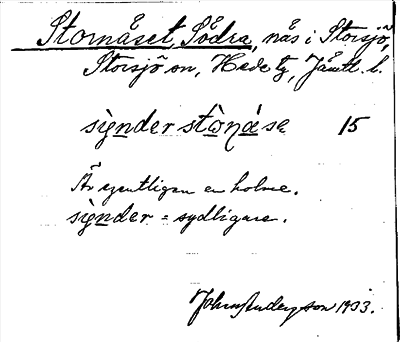 Stornåset, Södra, näs i Storsjö,
Storsjö sn, Hede tg, Jämtl. l.
sìgnder stònáse 15
Är egentligen en holme.
sìgnder = sydligare.
John Anderson 1933.